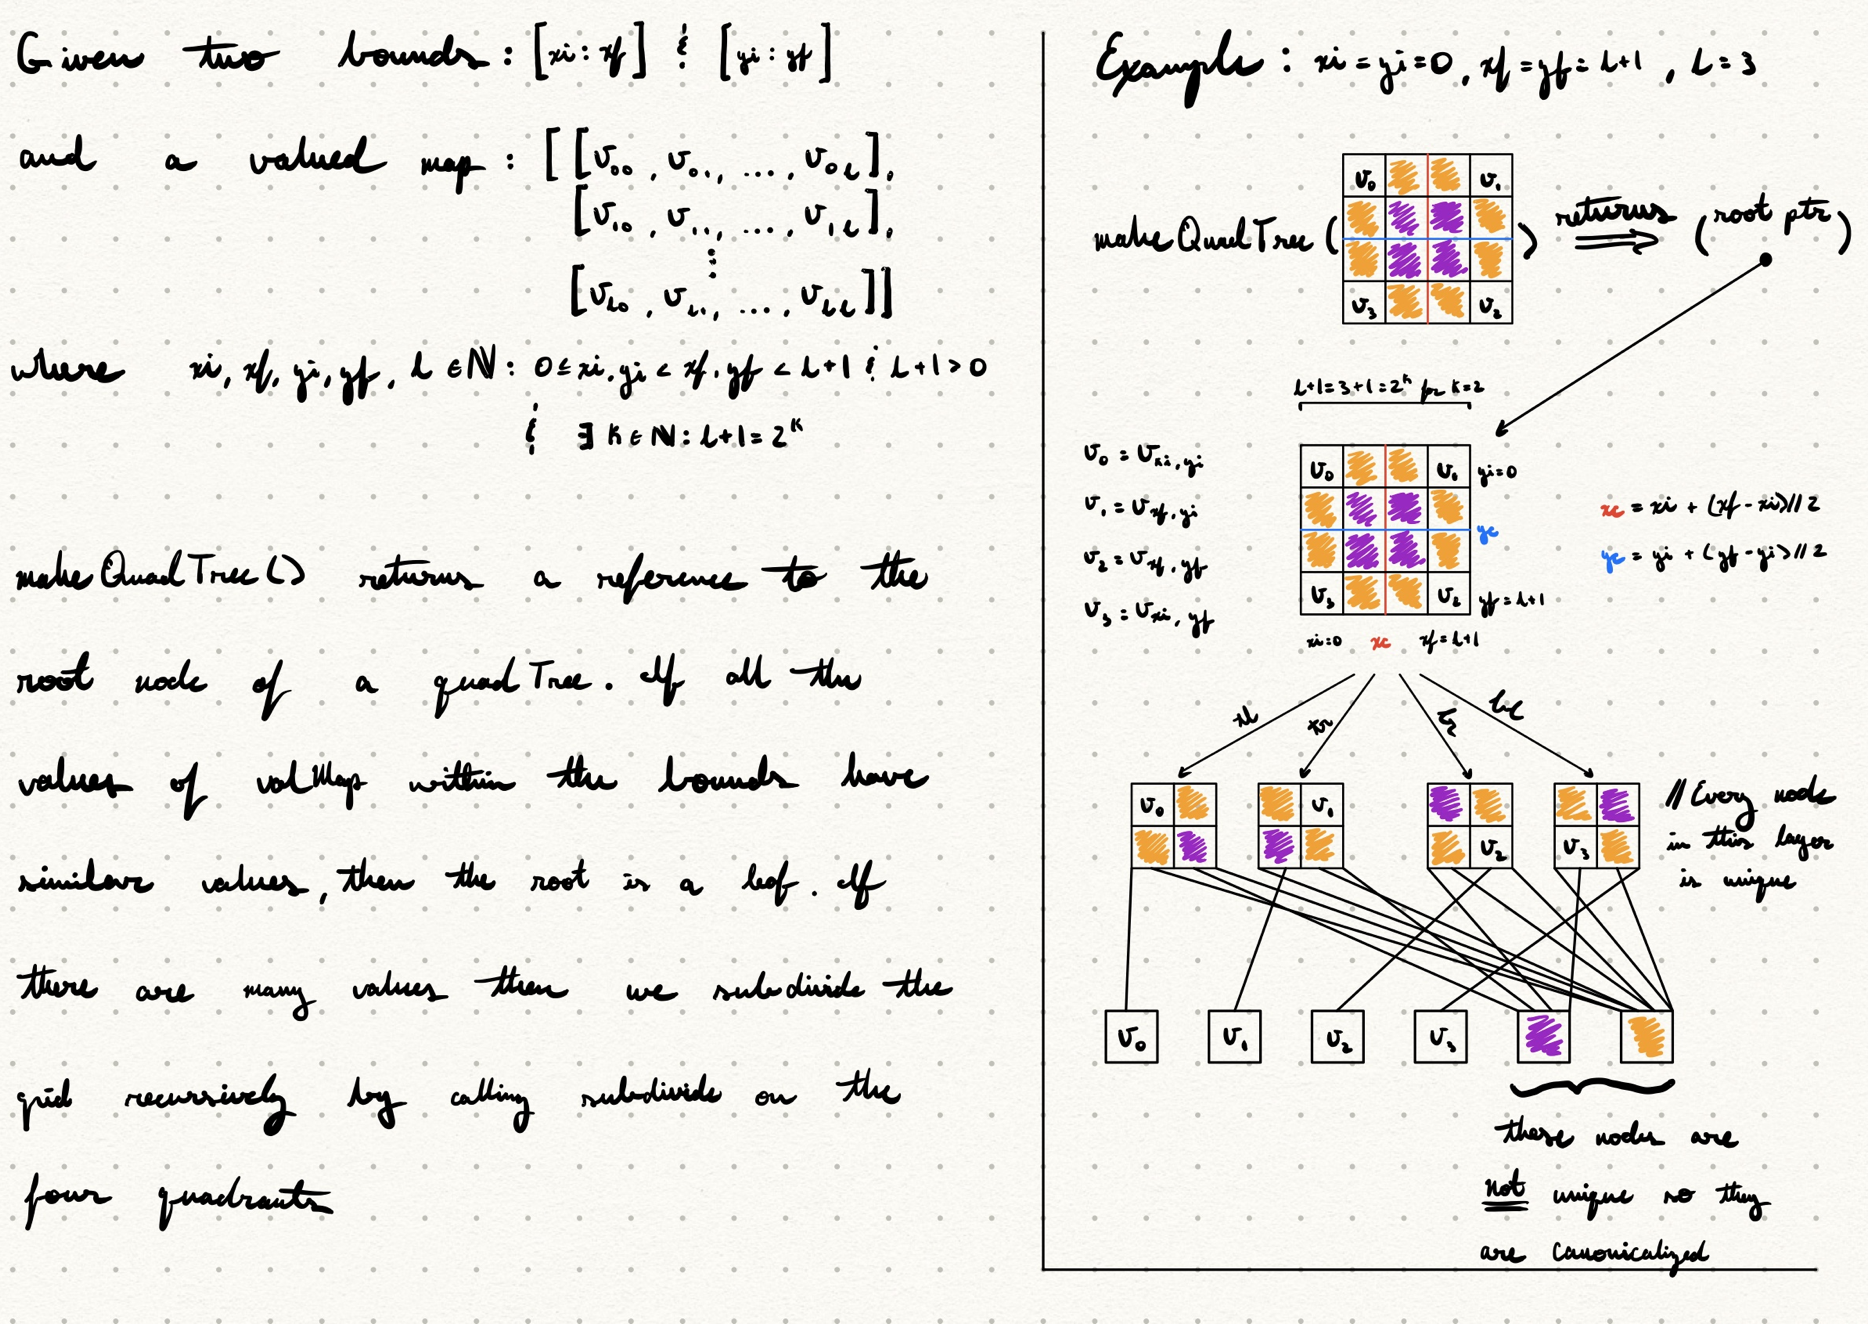 Given two bounds: [xi : xf] & [yi : yf]
and a valued map : [[v₀₀, v₀₁, ..., v₀L],
[v₁₀, v₁₁, ..., v₁L],
⋮
[vL₀, vL₁, ..., vLL]]
where xi, xf, yi, yf, L ∈ ℕ: 0≤xi, yi < xf, yf < L+1 & L+1>0
& ∃ K ∈ ℕ: L+1=2ᴷ
makeQuadTree() returns a reference to the
root node of a quadTree. If all the
values of valMap within the bounds have
similar values, then the root is a leaf. If
there are many values then we subdivide the
grid recursively by calling subdivide on the
four quadrants
Example : xi=yi=0, xf=yf=L+1, L=3
v₀ v₁
makeQuadTree( ) returns ⟹ (root ptr)
v₃ v₂
L+1=3+1=2ᴷ for K=2
v₀ = v xi, yi
v₁ = v xf, yi
v₂ = v xf, yf
v₃ = v xi, yf
v₀ v₁ yi=0
yc
v₃ v₂ yf=L+1
xi=0 xc xf=L+1
xc = xi + (xf-xi)//2
yc = yi + (yf-yi)//2
tl tr br bl
v₀ v₁
v₂ v₃
// Every node
in this layer
is unique
v₀ v₁ v₂ v₃
these nodes are
not unique so they
are canonicalized